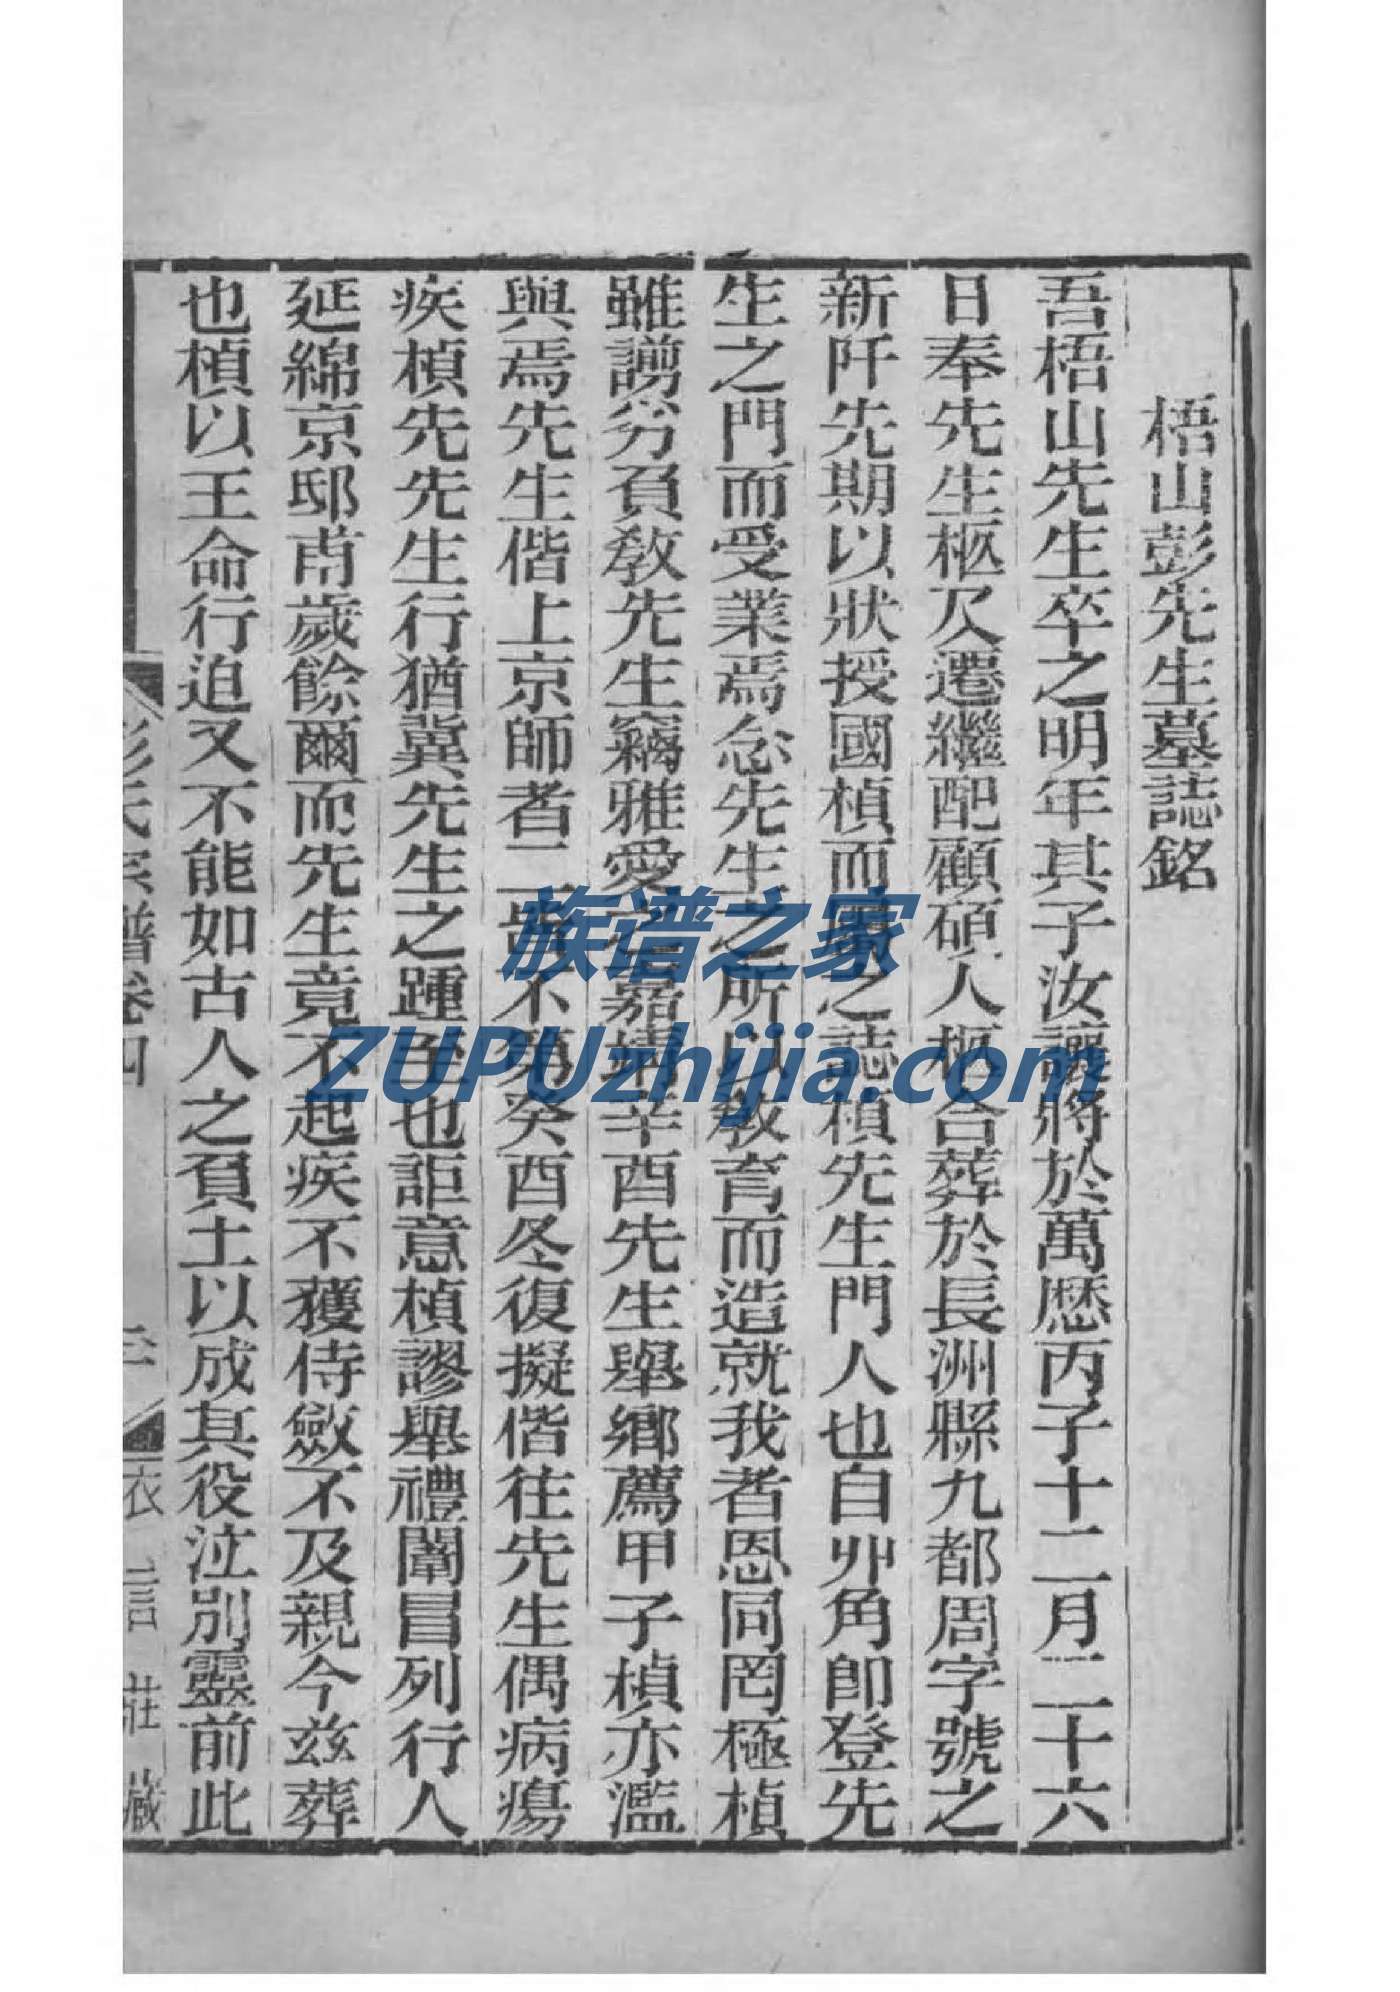 梧山彭先生墓誌銘
吾梧山先生卒之明年其子汝讓將於萬厯丙子十二月二十六
日奉先生柩及遷繼配顧碩人柩合葬於長洲縣九都周字號之
新阡先期以狀授國楨而屬之誌楨先生門人也自丱角即登先
生之門而受業焉念先生之所以教育而造就我者恩同罔極楨
雖譾劣負教先生竊雅愛之嘉靖辛酉先生舉鄉薦甲子楨亦濫
與焉先生偕上京師者二皆不第癸酉冬復擬偕往先生偶病瘍
疾楨先先生行猶冀先生之踵至也詎意楨謬舉禮闈冒列行人
延綿京邸甫歲餘爾而先生竟不起疾不獲侍斂不及親今兹葬
也楨以王命行迫又不能如古人之負土以成其役泣別靈前此
彭氏宗譜卷四
三
衣言莊藏
族谱之家
ZUPUzhijia.com